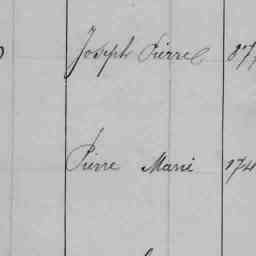 Joseph Pierre 87
Pierre Marie 174